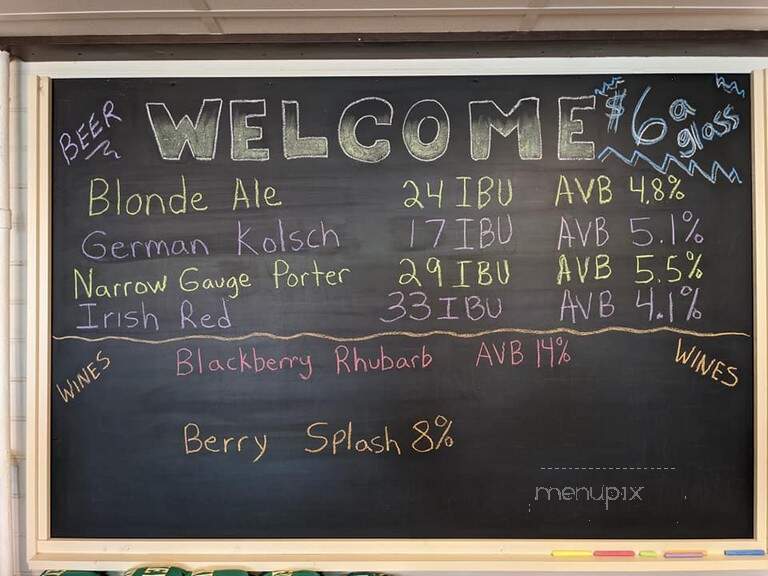 BEER WELCOME $6 a glass
Blonde Ale 24 IBU AVB 4.8%
German Kolsch 17 IBU AVB 5.1%
Narrow Gauge Porter 29 IBU AVB 5.5%
Irish Red 33 IBU AVB 4.1%
WINES Blackberry Rhubarb AVB 14% WINES
Berry Splash 8%
menupix